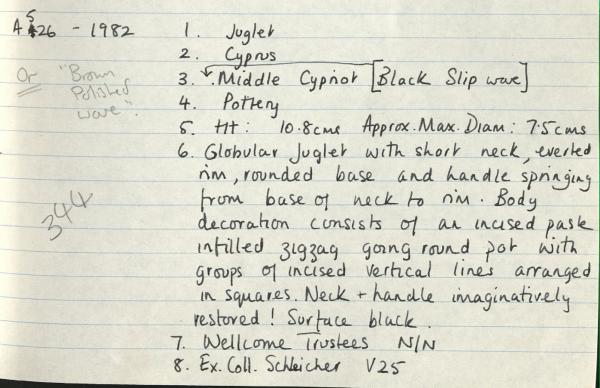 A526 - 1982
1. Juglet
2. Cyprus
3. Middle Cypriot [Black Slip ware]
Or "Brown
Polished
ware".
4. Pottery
5. Ht: 10.8cms Approx. Max. Diam: 7.5cms
6. Globular Juglet with short neck, everted
rim, rounded base and handle springing
from base of neck to rim. Body
decoration consists of an incised paste
infilled zigzag going round pot with
groups of incised vertical lines arranged
in squares. Neck + handle imaginatively
restored! Surface black.
344
7. Wellcome Trustees N/N
8. Ex. Coll. Schleicher V25